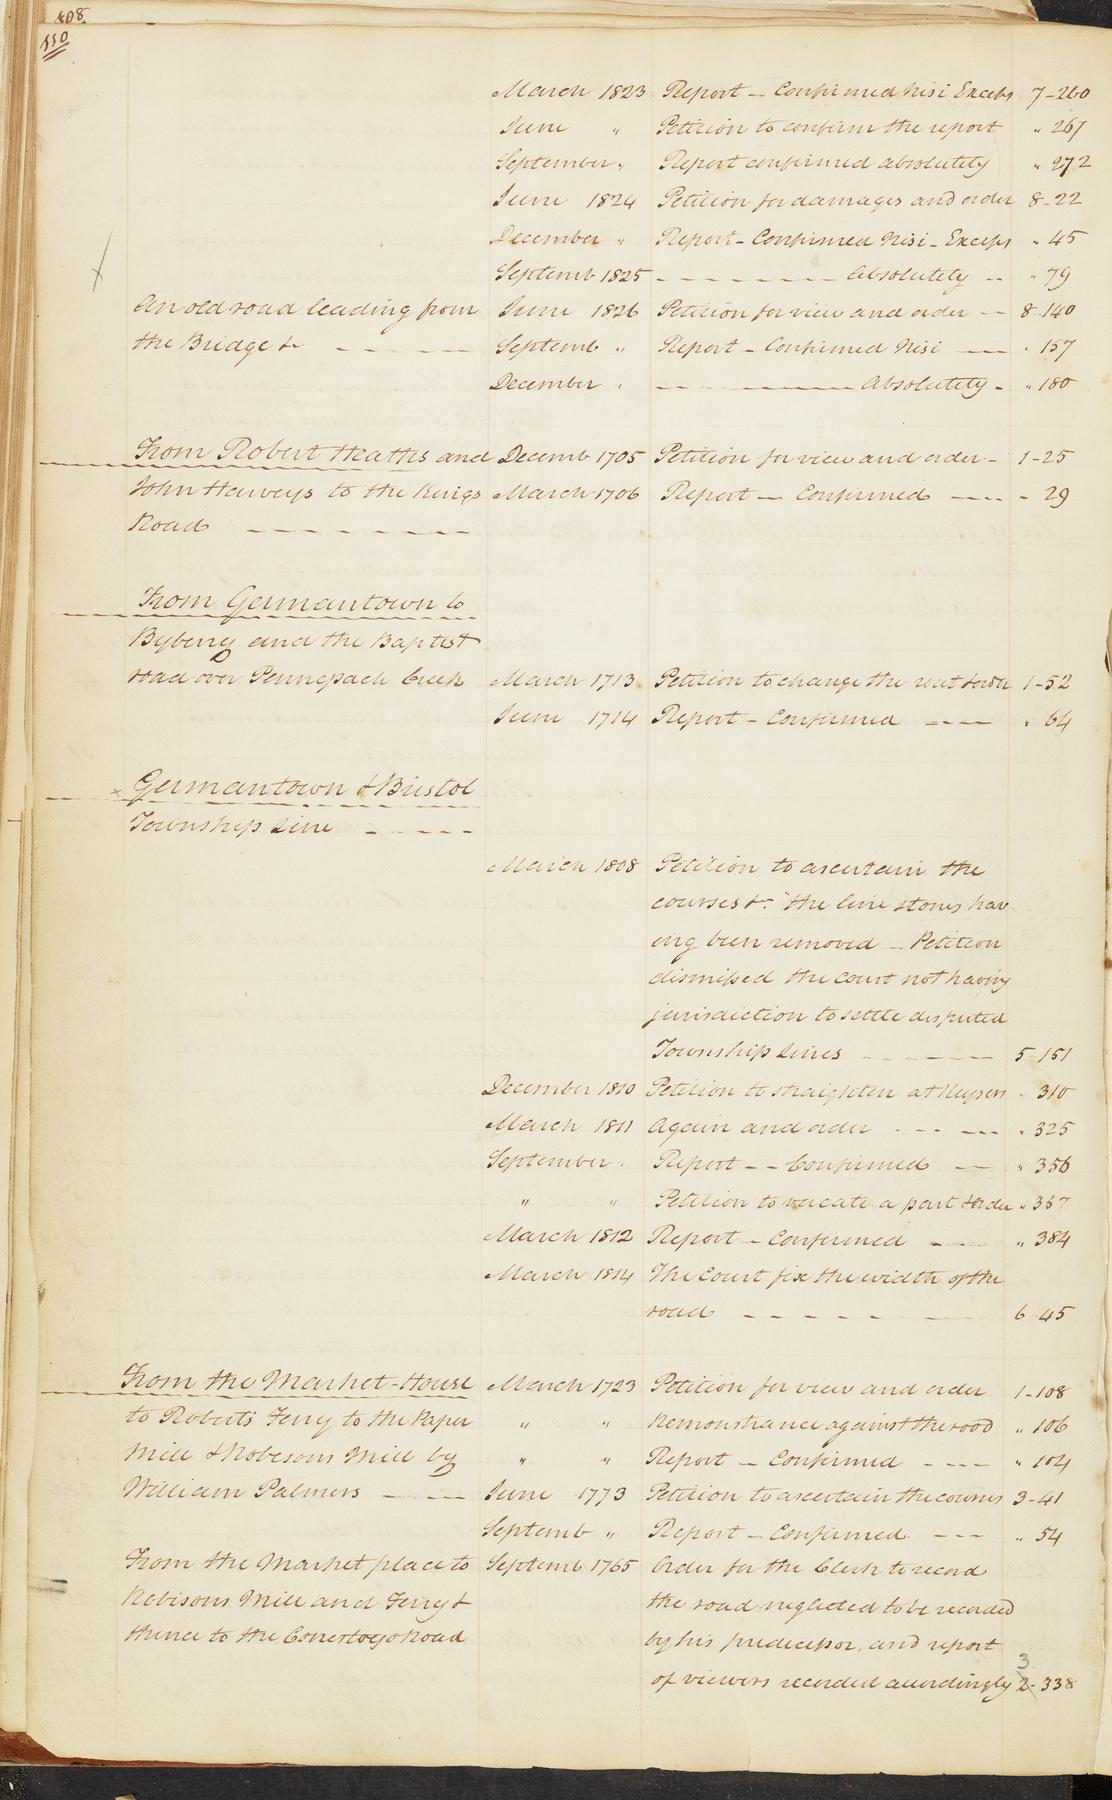 408
110
March 1823 Report – Confirmed Nisi Except 7-260
June " Petition to confirm the report " 267
September " Report confirmed absolutely " 272
June 1824 Petition for damages and order 8-22
December " Report – Confirmed Nisi – Except " 45
Septemb 1825 – – – – – – – Absolutely – – " 79
An old road leading from June 1826 Petition for view and order – – 8-140
the Bridge &c – – – – – Septemb " Report – Confirmed Nisi – – " 157
December " – – – – – – – Absolutely – " 180
From Robert Heaths and Decemb 1705 Petition for view and order – 1-25
John Harveys to the Kings March 1706 Report – Confirmed – – – " 29
Road – – – – – – – –
From Germantown to
Byberry and the Baptist
road over Pennepack Creek March 1713 Petition to change the rout &order 1-52
June 1714 Report – Confirmed – – – " 64
x Germantown & Bristol
Township Line – – – – –
March 1808 Petition to ascertain the
courses &c. "the line stones hav
ing been removed – Petition
dismissed the court not having
jurisdiction to settle disputed
Township lines – – – – – 5-151
December 1810 Petition to straighten at Keysers " 310
March 1811 Again and order – – – – " 325
September " Report – – Confirmed – " 356
" " Petition to vacate a part &order " 357
March 1812 Report – Confirmed – – " 384
March 1814 The Court fix the width of the
road – – – – – – 6-45
From the Market-House March 1723 Petition for view and order 1-108
to Roberts Ferry to the Paper " " Remonstrance against the road " 106
Mill & Robesons Mill by " " Report – Confirmed – – – " 104
William Palmers – – – June 1773 Petition to ascertain the courses 3-41
Septemb " Report – Confirmed – – – " 54
From the Market place to Septemb 1765 Order for the Clerk to record
Robisons Mill and Ferry & the road neglected to be recorded
thence to the Conestogo Road by his predecessor, and report
3
of viewers recorded accordingly 2-338